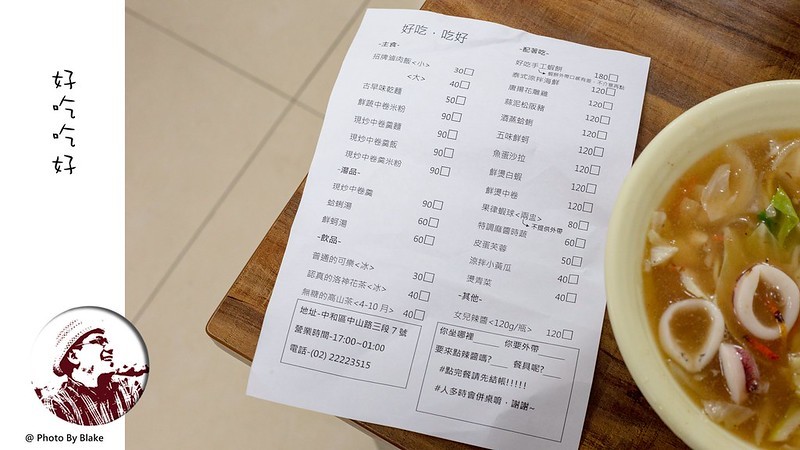 好吃吃好
@ Photo By Blake
好吃．吃好
-主食-
招牌滷肉飯<小> 30□
<大> 40□
古早味乾麵 50□
鮮蔬中卷米粉 90□
現炒中卷羹麵 90□
現炒中卷羹飯 90□
現炒中卷羹米粉 90□
-湯品-
現炒中卷羹 90□
蛤蜊湯 60□
鮮蚵湯 60□
-飲品-
普通的可樂<冰> 30□
認真的洛神花茶<冰> 40□
無糖的高山茶<4-10 月> 40□
地址-中和區中山路三段 7 號
營業時間-17:00~01:00
電話-(02) 22223515
-配著吃-
好吃手工蝦餅 180□
泰式涼拌海鮮 120□
唐揚花雕雞 120□
蒜泥松阪豬 120□
酒蒸蛤蜊 120□
五味鮮蚵 120□
魚蛋沙拉 120□
鮮燙白蝦 120□
鮮燙中卷 120□
果律蝦球<兩盅> 80□
不提供外帶
特調麻醬時蔬 60□
皮蛋芙蓉 50□
涼拌小黃瓜 40□
燙青菜 40□
-其他-
女兒辣醬 <120g/瓶> 120□
你坐哪裡____ 你要外帶____
要來點辣醬嗎?____ 餐具呢?____
#點完餐請先結帳!!!!!
#人多時會併桌唷．謝謝~